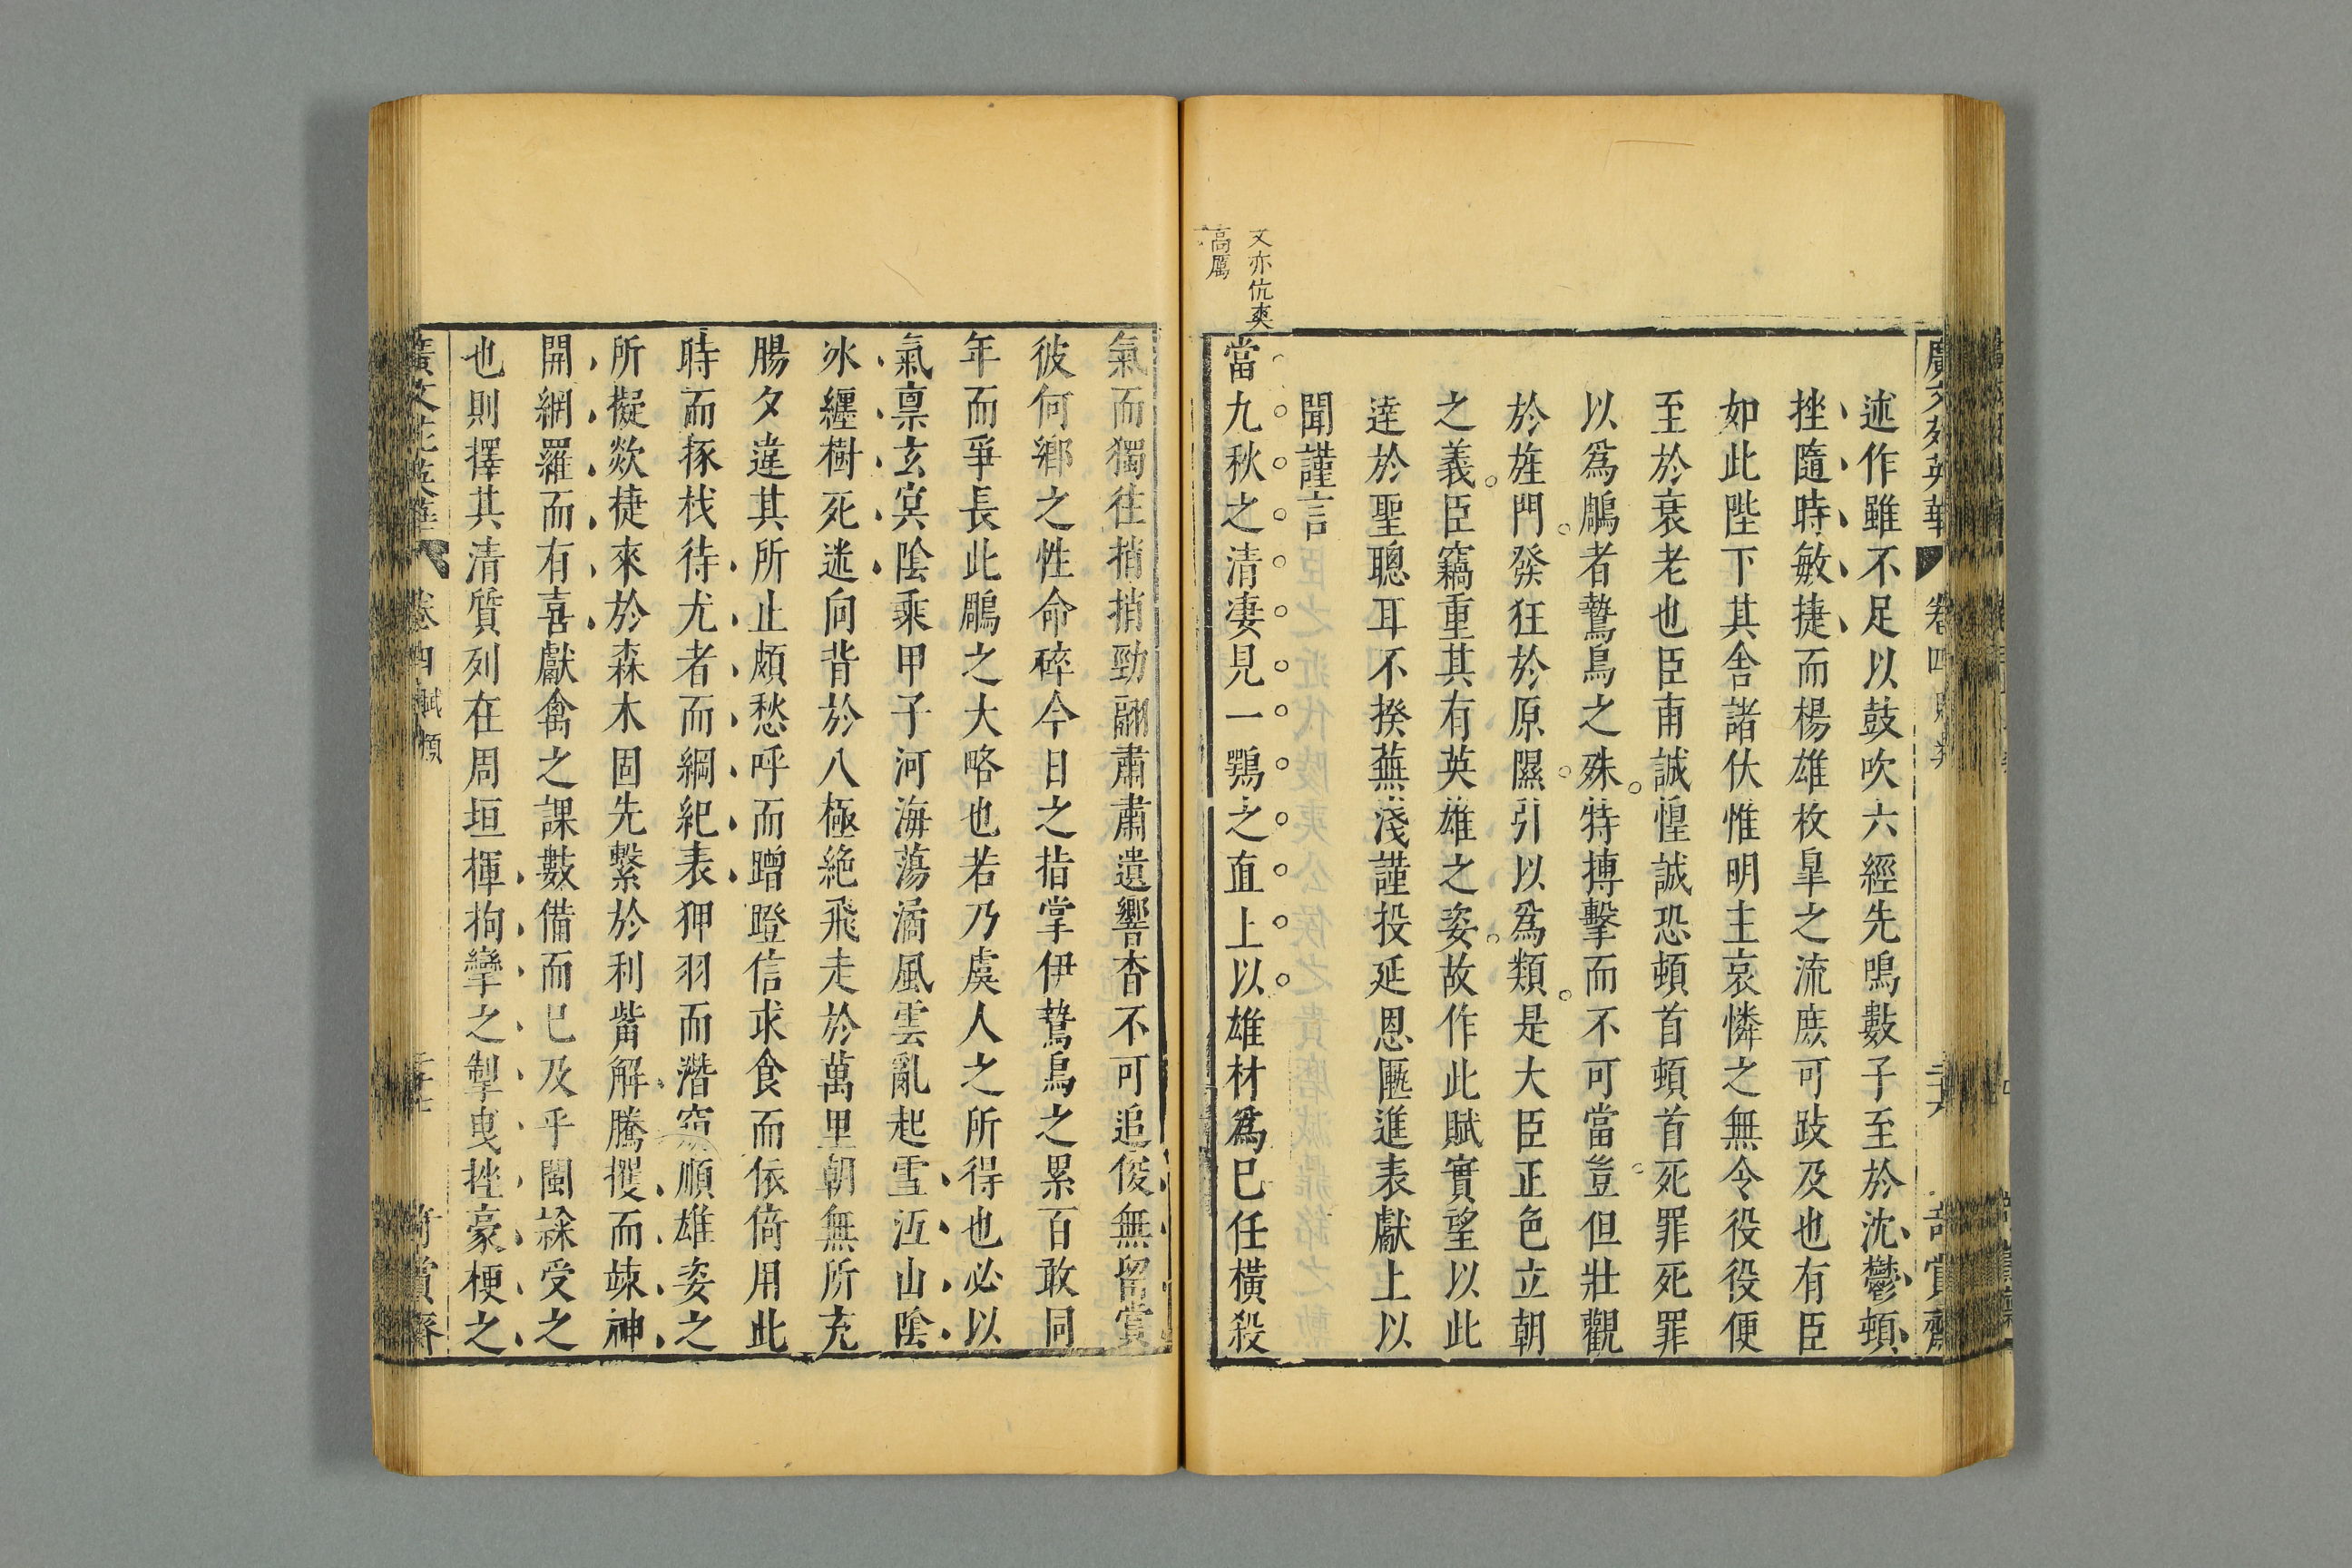 廣文苑英華 卷四 賦類 二十六 奇賞齋
述作雖不足以鼓吹六經先鳴數子至於沈鬱頓
挫隨時敏捷而楊雄枚臯之流庶可跂及也有臣
如此陛下其舍諸伏惟明主哀憐之無令役役便
至於衰老也臣甫誠惶誠恐頓首頓首死罪死罪
以爲鵰者鷙鳥之殊特搏擊而不可當豈但壯觀
於旌門發狂於原隰引以爲類是大臣正色立朝
之義臣竊重其有英雄之姿故作此賦實望以此
達於聖聰耳不揆蕪淺謹投延恩匭進表獻上以
聞謹言
文亦伉爽
高厲
當九秋之清凄見一鶚之直上以雄材爲巳任橫殺
氣而獨往捎捎勁翮肅肅遺響杳不可追俊無留賞
彼何鄉之性命碎今日之指掌伊鷙鳥之累百敢同
年而爭長此鵰之大略也若乃虞人之所得也必以
氣稟玄冥陰乘甲子河海蕩潏風雲亂起雪沍山陰
氷纏樹死迷向背於八極絶飛走於萬里朝無所充
腸夕違其所止頗愁呼而蹭蹬信求食而依倚用此
時而椓杙待尤者而綱紀表狎羽而潛窺順雄姿之
所擬欻捷來於森木固先繫於利觜解騰攫而竦神
開網羅而有喜獻禽之課數備而巳及乎閩隸受之
也則擇其清質列在周垣揮拘攣之掣曳挫豪梗之
廣文苑英華 卷四 賦類 二十七 奇賞齋